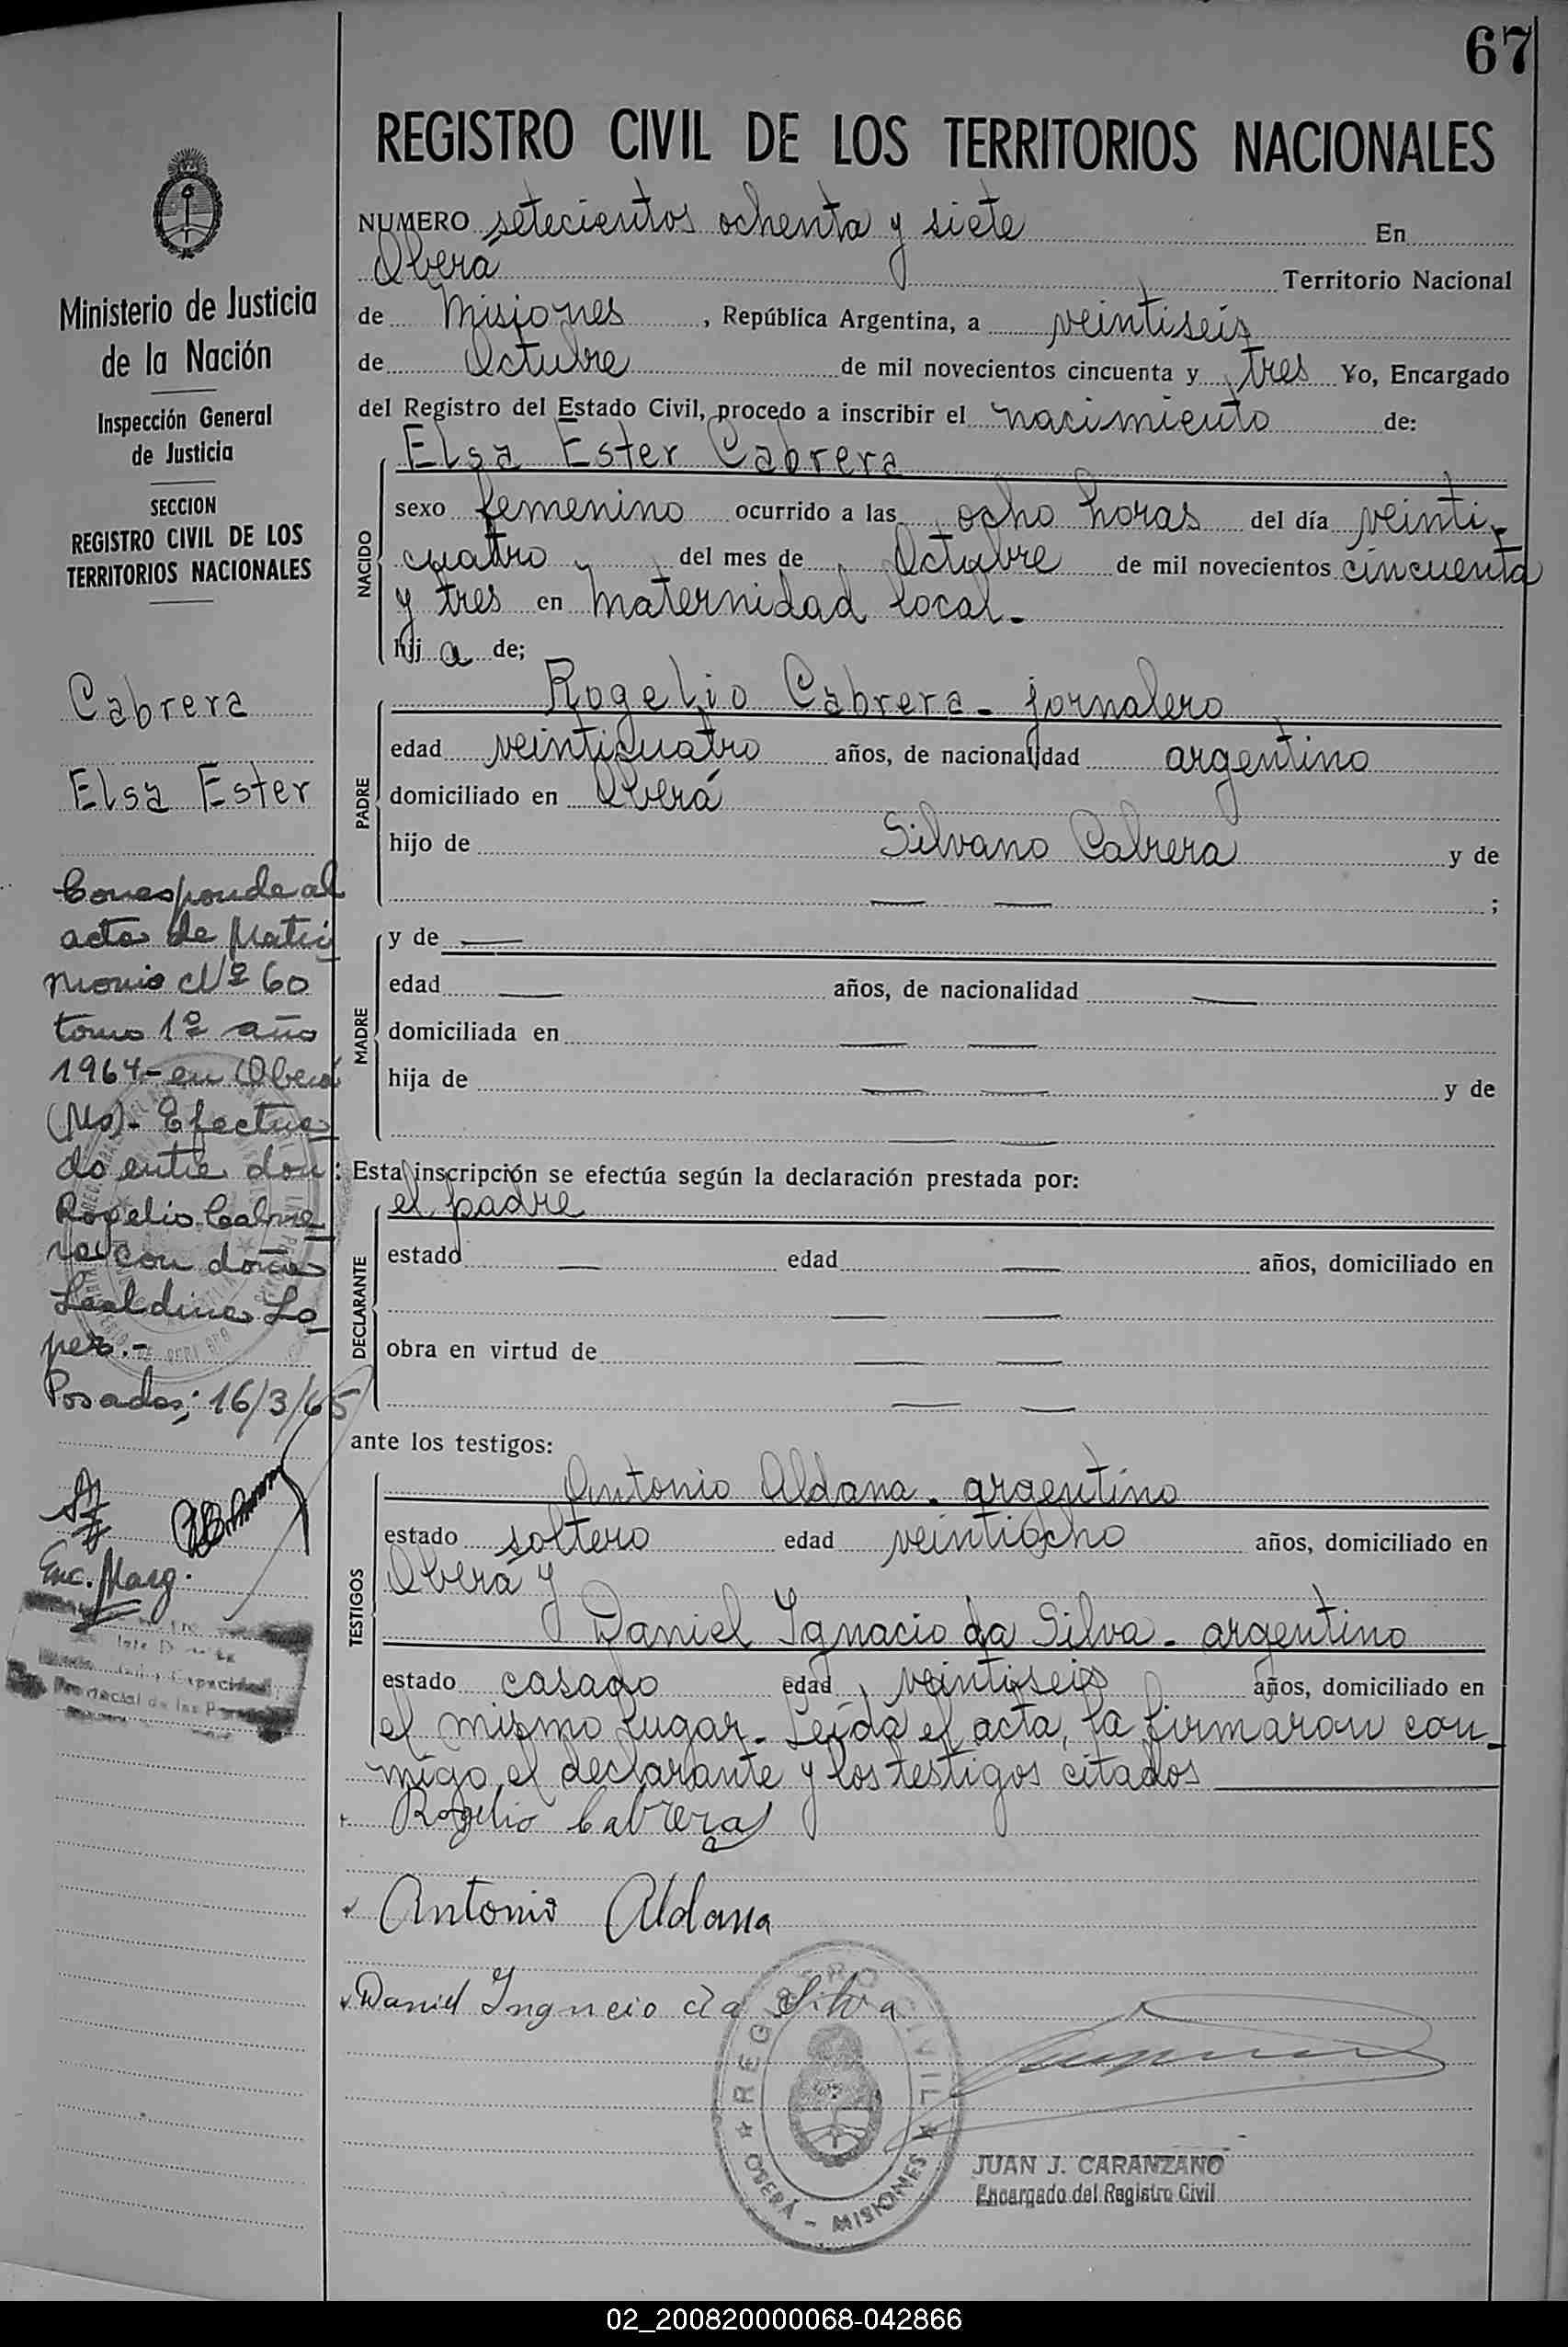 67
REGISTRO CIVIL DE LOS TERRITORIOS NACIONALES
Ministerio de Justicia
de la Nación
Inspección General
de Justicia
SECCION
REGISTRO CIVIL DE LOS
TERRITORIOS NACIONALES
Cabrera
Elsa Ester
Corresponde al
acta de Matri
monio Nº 60
tomo 1º año
1964- en Oberá
(Ms)- Efectua
do entre don
Rogelio Cabre
ra con doña
Lo
pez.-
Posadas; 16/3/65
Enc. Marg.
NUMERO setecientos ochenta y siete En
Oberá Territorio Nacional
de Misiones, República Argentina, a veintiseis
de Octubre de mil novecientos cincuenta y tres Yo, Encargado
del Registro del Estado Civil, procedo a inscribir el nacimiento de:
Elsa Ester Cabrera
NACIDO
sexo femenino ocurrido a las ocho horas del día veinti-
cuatro del mes de Octubre de mil novecientos cincuenta
y tres en Maternidad local.-
hij a de;
PADRE
Rogelio Cabrera - jornalero
edad veinticuatro años, de nacionalidad argentino
domiciliado en Oberá
hijo de Silvano Cabrera y de
— — ;
MADRE
y de —
edad — años, de nacionalidad —
domiciliada en — —
hija de — — y de
— —
: Esta inscripción se efectúa según la declaración prestada por:
DECLARANTE
el padre
estado — edad — años, domiciliado en
— —
obra en virtud de — —
— —
ante los testigos:
TESTIGOS
Antonio Aldana - argentino
estado soltero edad veintiocho años, domiciliado en
Oberá y
Daniel Ignacio da Silva - argentino
estado casado edad veintiseis años, domiciliado en
el mismo lugar - Leída el acta, la firmaron con-
migo el declarante y los testigos citados
Rogelio Cabrera
Antonio Aldana
Daniel Ingncio da Silva
REGISTRO CIVIL
OBERÁ - MISIONES
JUAN J. CARANZANO
Encargado del Registro Civil
02_200820000068-042866